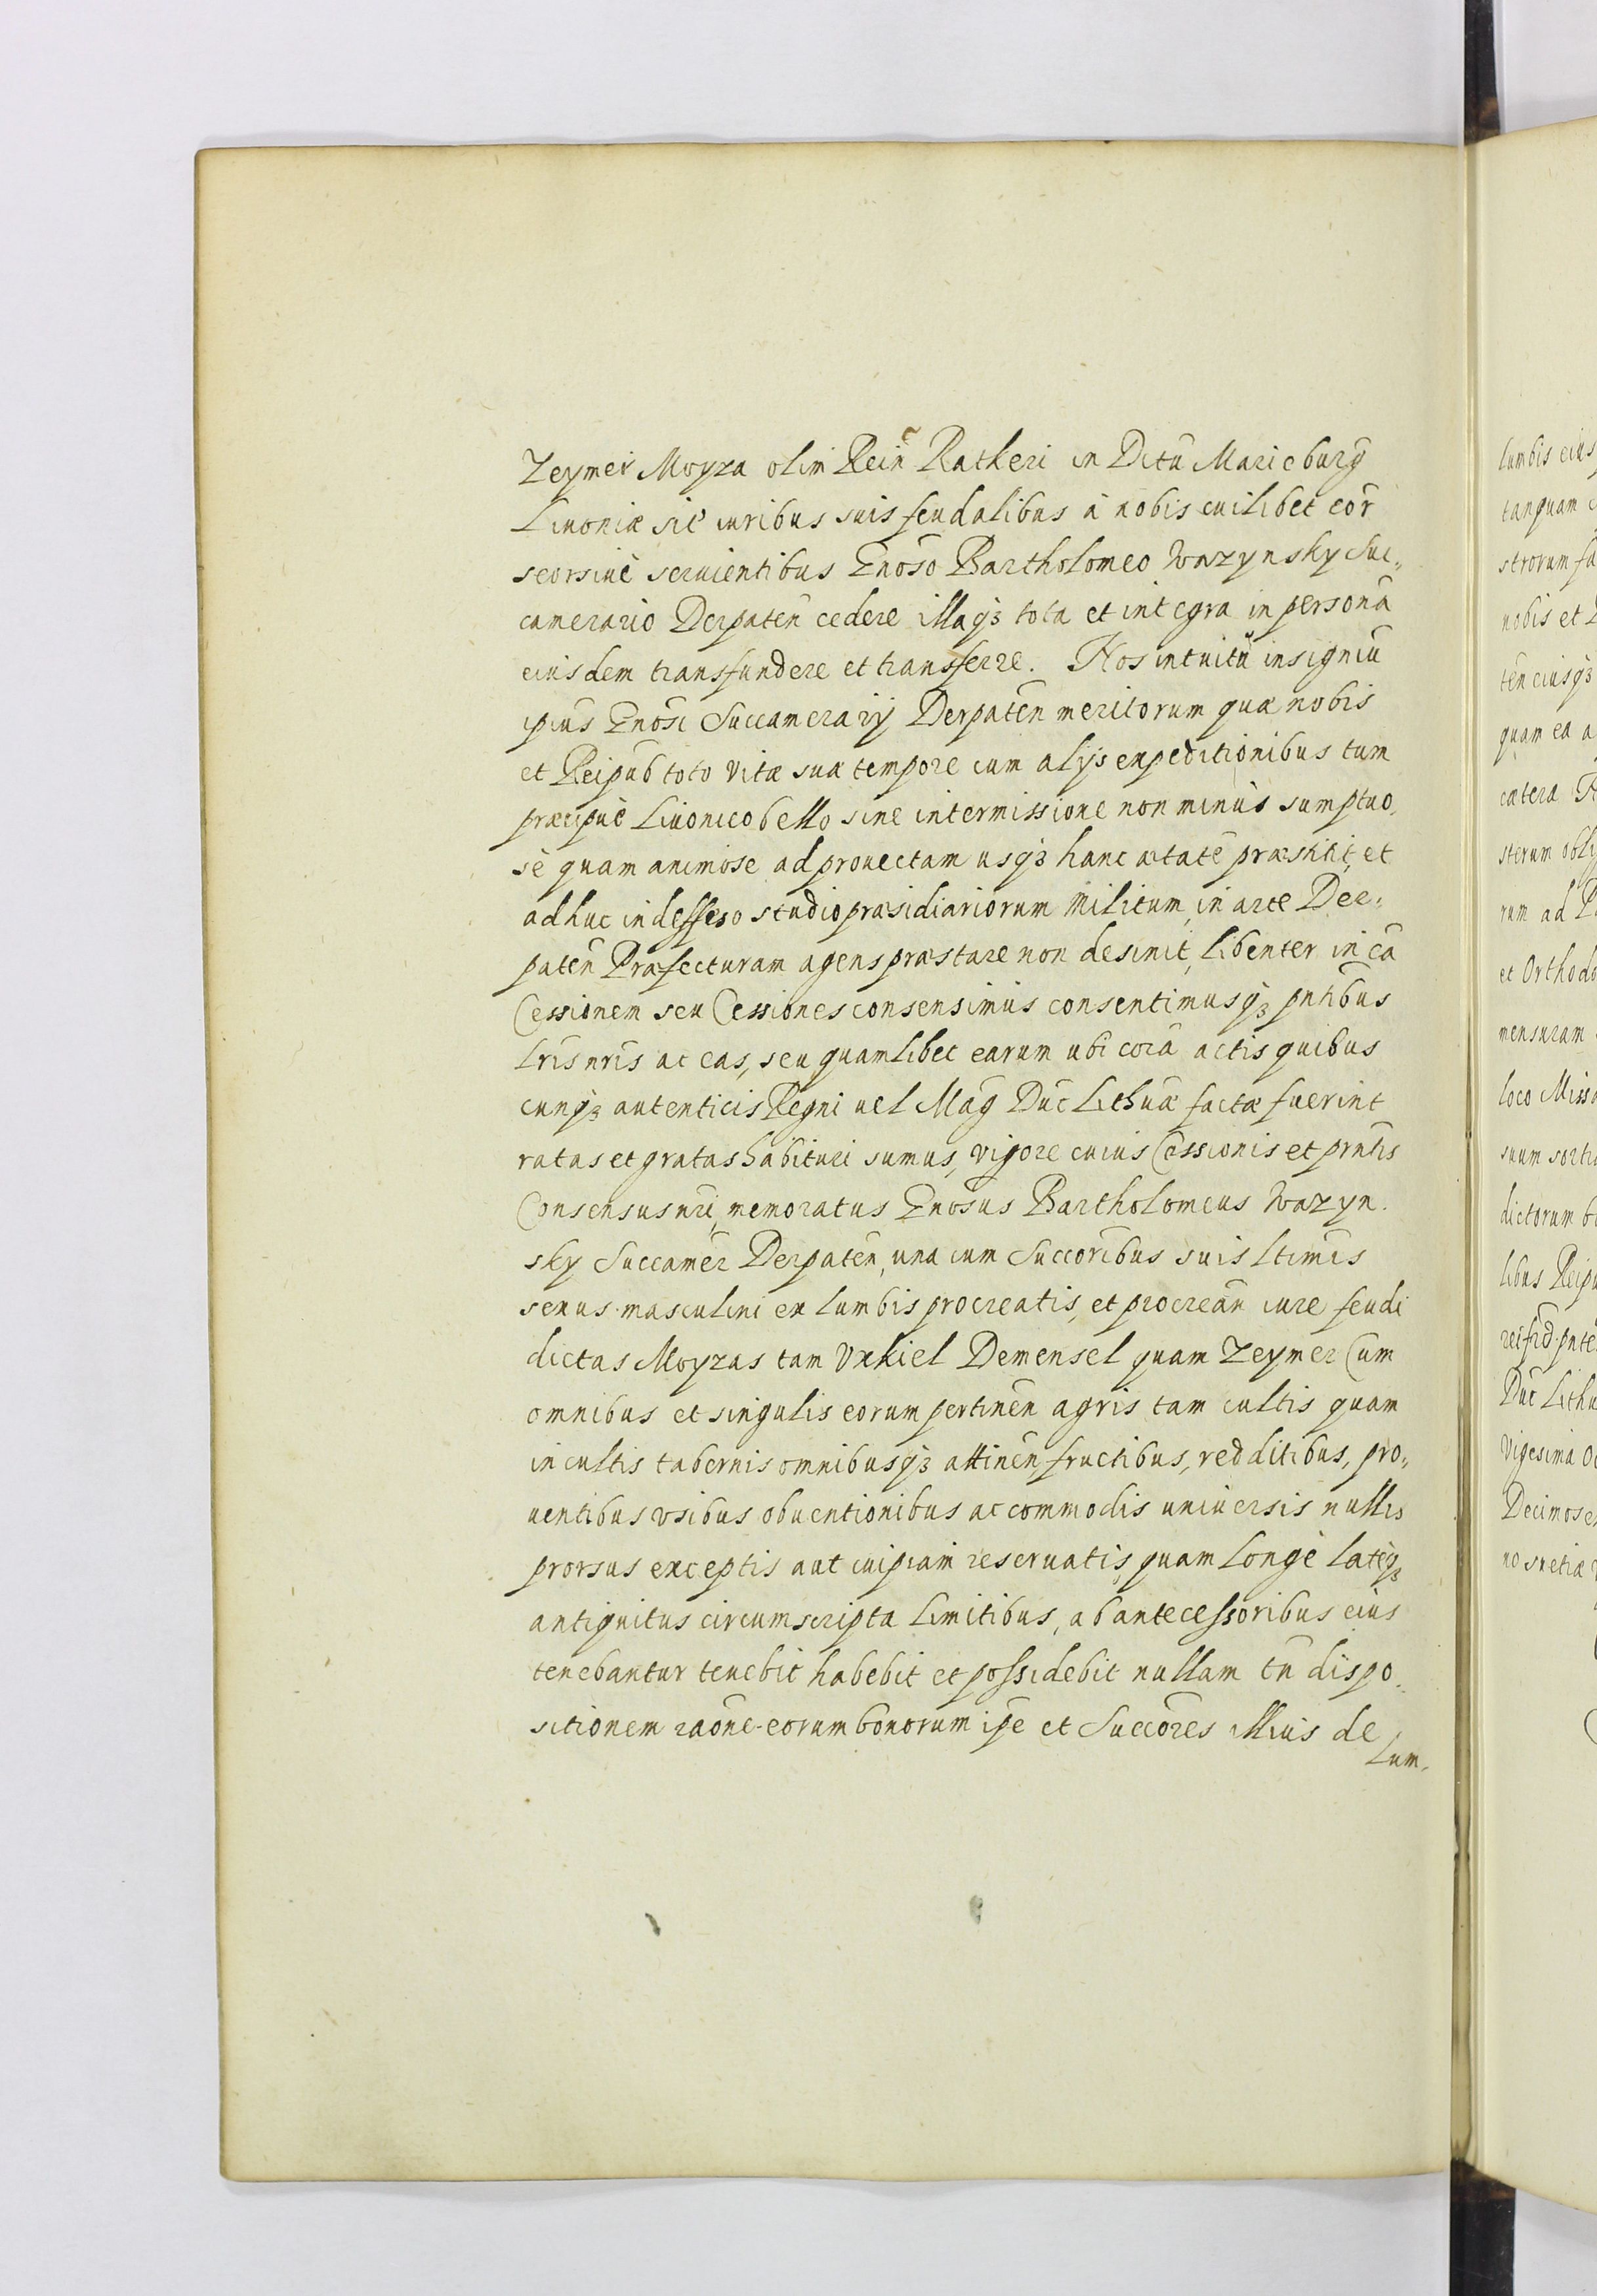 Zeymer Moyza olim Rein̄ Ratkeri in Ditn̄ Marieburḡ
Liuoniæ sic̄ iuribus suis feudalibus à nobis cuilibet eor̄
seorsiuè seruientibus Gnōso Bartholomeo Wazynsky Suc„
camerario Derpaten̄ cedere illaqз tota et integra in personā
eiusdem transfundere et transferre. Nos intuitu insigniū
ipius Gnōsi Succamerarÿ Derpaten̄ meritorum quæ nobis
et Reipub̄ toto vitæ suæ tempore cum alÿs expeditionibus tum
præcipuè Liuonico bello sine intermissione non minùs sumptuo„
sè quam animose ad prouectam usqз hanc ætatē præstitit, et
adhuc indefesso studio præsidiariorum Militum, in arce Der„
paten̄ Præfecturam agens præstare non desinit, libenter in eā
Cessionem seu Cessiones consensimus consentimusqз pn̄tibus
Lris nr̄is ac eas, seu quamlibet earum ubi corā actis quibus
cunqз autenticis Regni uel Maḡ Duc̄ Lithuæ factæ fuerint
ratas et gratas habituri sumus, vigore cuius Cessionis et prn̄tis
Consensus nr̄i, memoratus Gnōsus Bartholomeus Wazyn„
sky Succamer̄ Derpaten̄, una cum Succoribus suis Ltimis
sexus masculini ex lumbis procreatis, et procrean̄ iure feudi
dictas Moyzas tam Vxkiel Demensel quam Zeymer Cum
omnibus et singulis eorum pertinen̄ agris tam cultis quam
incultis tabernis omnibusqз attinen̄ fructibus, redditibus, pro„
uentibus vsibus obuentionibus ac commodis uniuersis nullis
prorsus exceptis aut cuipiam reseruatis, quam longè latèqз
antiquitus circumscripta limitibus, ab antecessoribus eius
tenebantur tenebit habebit et possidebit nullam tn̄ dispo„
sitionem raōne eorum bonorum ipe et Succores illius de
Lum„
lumbis eius
tanquam
strorum
nobis et
ten̄ eiusqз
quam ea a
cætera
sterum
rum ad
et Orthodo
mensuram
loco Miss
suum sorti
dictorum
libus Reipu
Duc̄ Lithu
Vigesima
Decimose